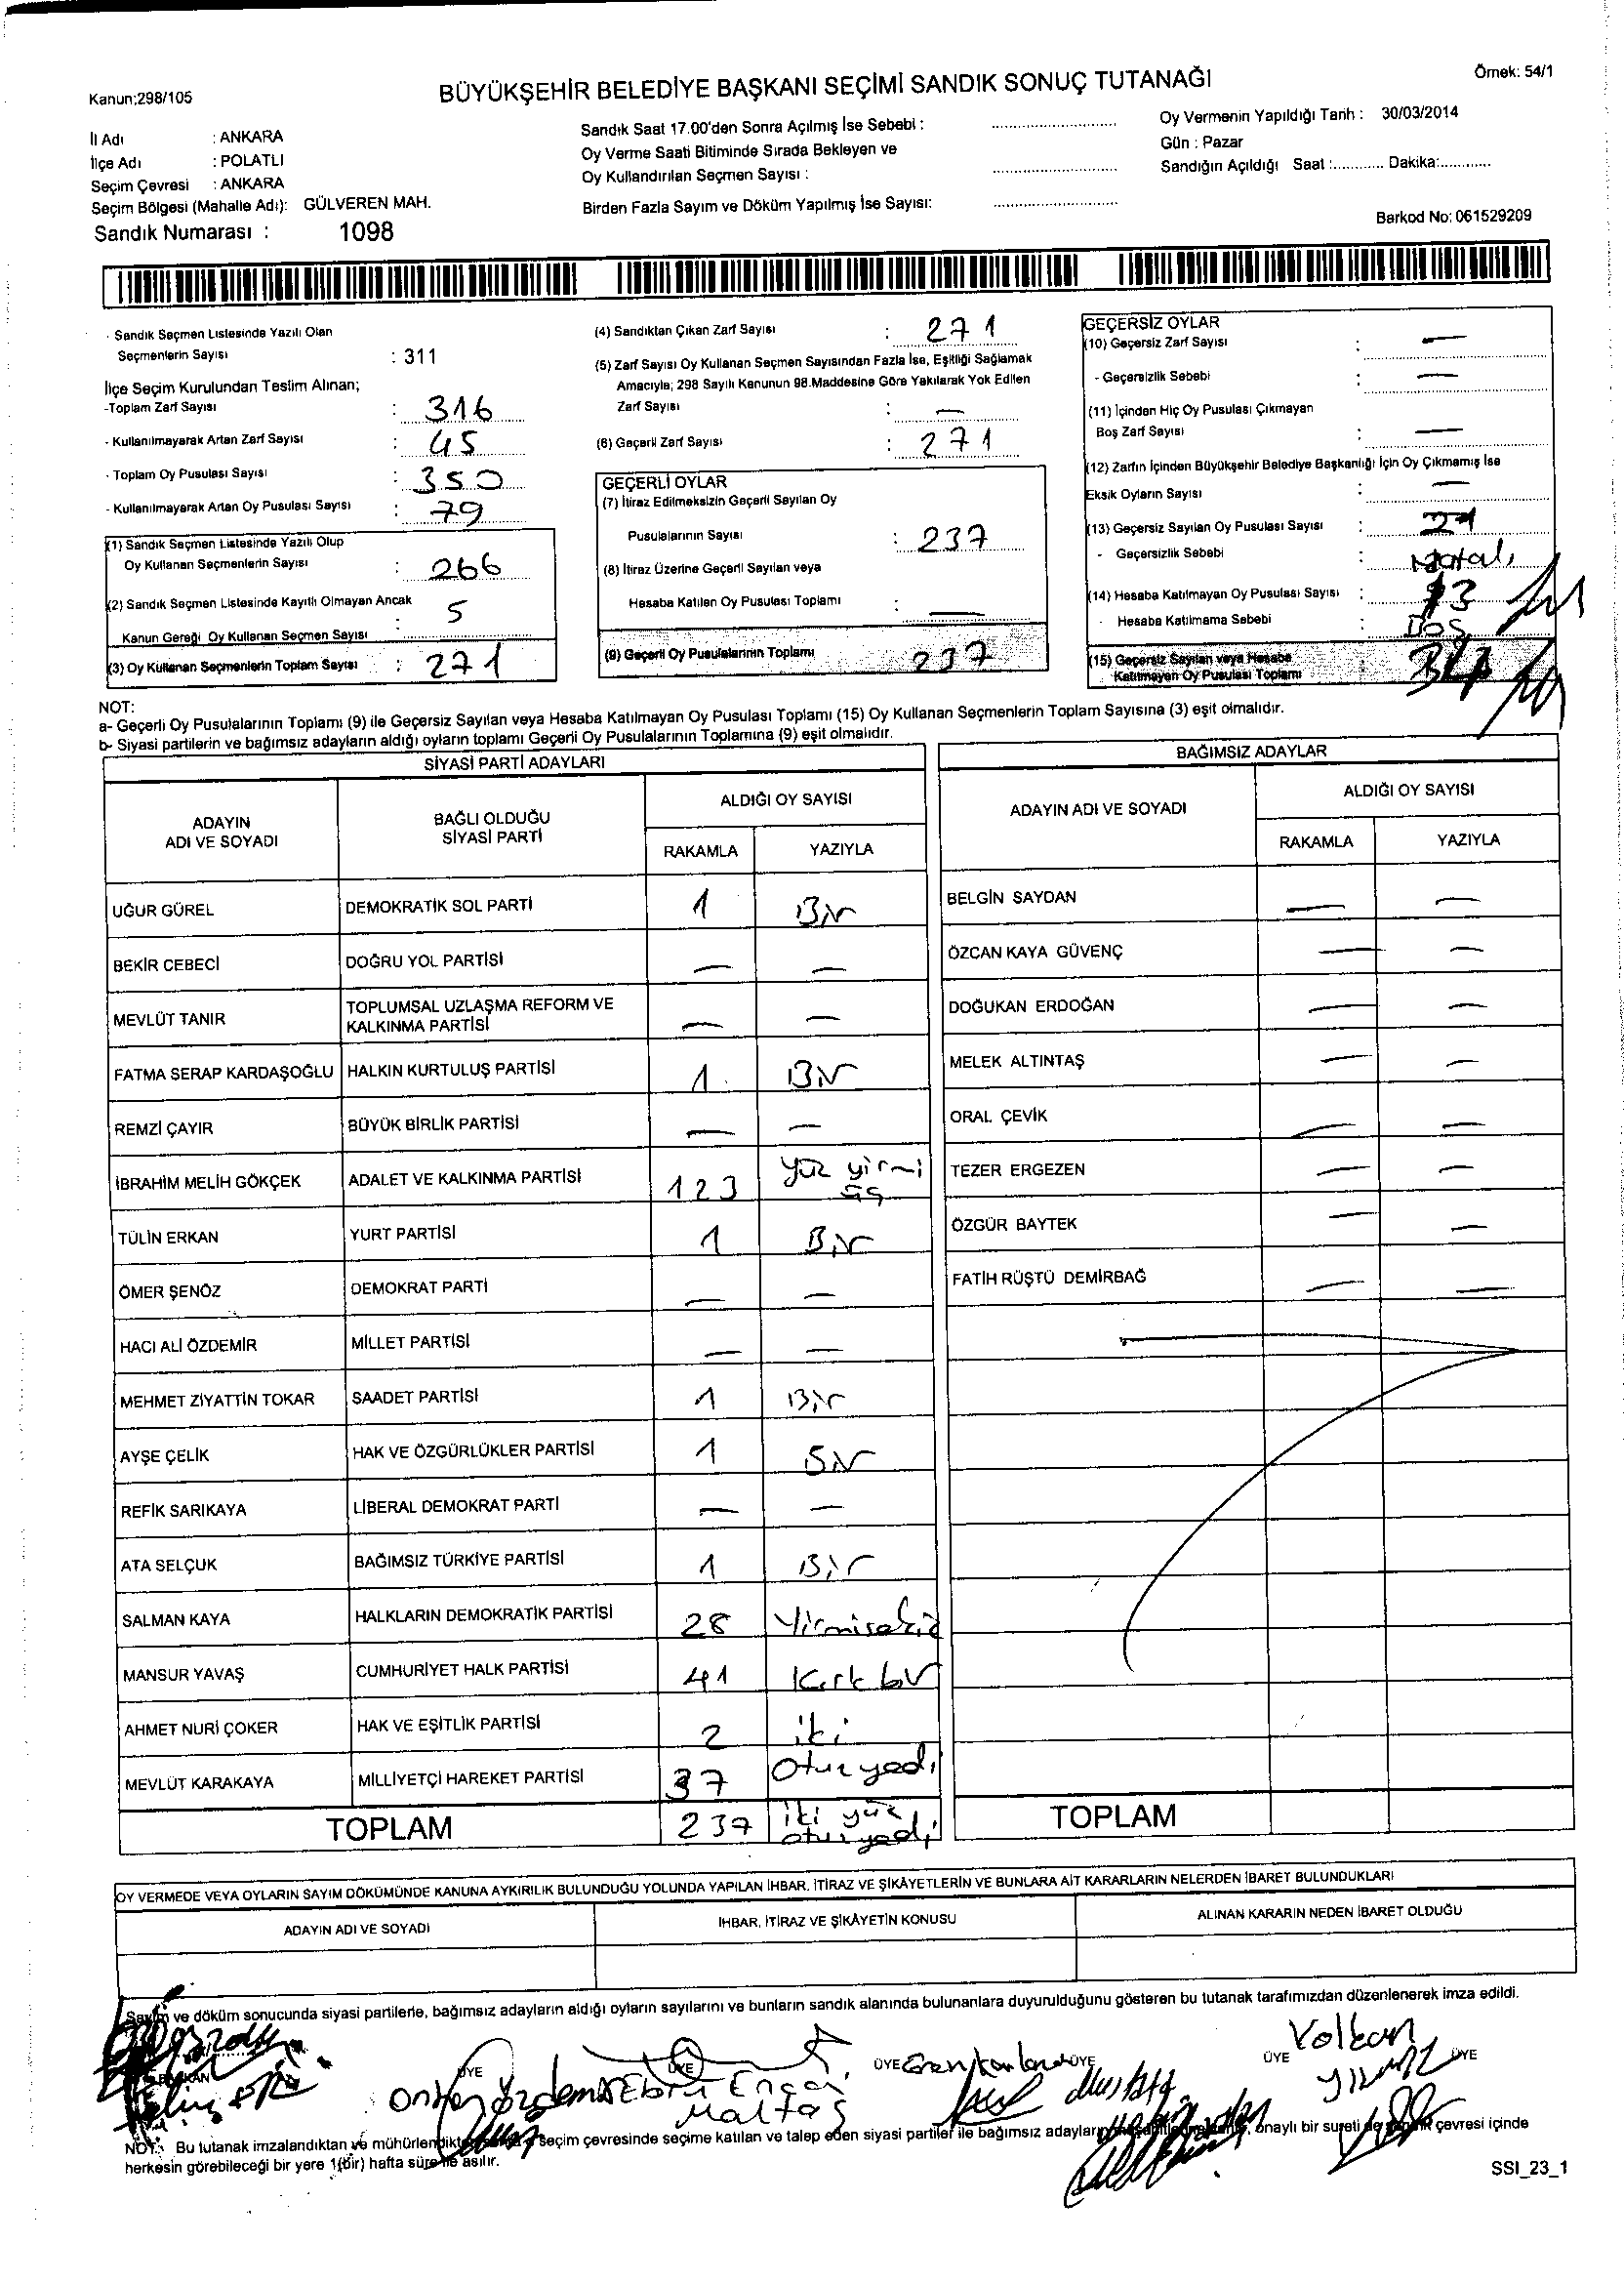 Kanun:298/105
BÜYÜKŞEHİR BELEDİYE BAŞKANI SEÇİMİ SANDIK SONUÇ TUTANAĞI
Örnek: 54/1
İl Adı : ANKARA
İlçe Adı : POLATLI
Seçim Çevresi : ANKARA
Seçim Bölgesi (Mahalle Adı): GÜLVEREN MAH.
Sandık Numarası : 1098
Sandık Saat 17.00'den Sonra Açılmış İse Sebebi :
Oy Verme Saati Bitiminde Sırada Bekleyen ve
Oy Kullandırılan Seçmen Sayısı :
Birden Fazla Sayım ve Döküm Yapılmış İse Sayısı:
Oy Vermenin Yapıldığı Tarih : 30/03/2014
Gün : Pazar
Sandığın Açıldığı Saat :............ Dakika:............
Barkod No: 061529209
- Sandık Seçmen Listesinde Yazılı Olan
Seçmenlerin Sayısı : 311
İlçe Seçim Kurulundan Teslim Alınan;
-Toplam Zarf Sayısı : 316
- Kullanılmayarak Artan Zarf Sayısı : 45
- Toplam Oy Pusulası Sayısı : 350
- Kullanılmayarak Artan Oy Pusulası Sayısı : 79
(1) Sandık Seçmen Listesinde Yazılı Olup
Oy Kullanan Seçmenlerin Sayısı : 266
(2) Sandık Seçmen Listesinde Kayıtlı Olmayan Ancak
Kanun Gereği Oy Kullanan Seçmen Sayısı : 5
(3) Oy Kullanan Seçmenlerin Toplam Sayısı : 271
(4) Sandıktan Çıkan Zarf Sayısı : 271
(5) Zarf Sayısı Oy Kullanan Seçmen Sayısından Fazla İse, Eşitliği Sağlamak
Amacıyla; 298 Sayılı Kanunun 98.Maddesine Göre Yakılarak Yok Edilen
Zarf Sayısı : —
(6) Geçerli Zarf Sayısı : 271
GEÇERLİ OYLAR
(7) İtiraz Edilmeksizin Geçerli Sayılan Oy
Pusulalarının Sayısı : 237
(8) İtiraz Üzerine Geçerli Sayılan veya
Hesaba Katılan Oy Pusulası Toplamı : —
(9) Geçerli Oy Pusulalarının Toplamı 237
GEÇERSİZ OYLAR
(10) Geçersiz Zarf Sayısı : —
- Geçersizlik Sebebi : —
(11) İçinden Hiç Oy Pusulası Çıkmayan
Boş Zarf Sayısı : —
(12) Zarfın İçinden Büyükşehir Belediye Başkanlığı İçin Oy Çıkmamış İse
Eksik Oyların Sayısı : —
(13) Geçersiz Sayılan Oy Pusulası Sayısı : 21
- Geçersizlik Sebebi :
(14) Hesaba Katılmayan Oy Pusulası Sayısı : 13
- Hesaba Katılmama Sebebi :
(15) Geçersiz Sayılan veya Hesaba
Katılmayan Oy Pusulası Toplamı
NOT:
a- Geçerli Oy Pusulalarının Toplamı (9) ile Geçersiz Sayılan veya Hesaba Katılmayan Oy Pusulası Toplamı (15) Oy Kullanan Seçmenlerin Toplam Sayısına (3) eşit olmalıdır.
b- Siyasi partilerin ve bağımsız adayların aldığı oyların toplamı Geçerli Oy Pusulalarının Toplamına (9) eşit olmalıdır.
SİYASİ PARTİ ADAYLARI
ADAYIN ADI VE SOYADI
BAĞLI OLDUĞU SİYASİ PARTİ
ALDIĞI OY SAYISI
RAKAMLA YAZIYLA
UĞUR GÜREL DEMOKRATİK SOL PARTİ 1 Bir
BEKİR CEBECİ DOĞRU YOL PARTİSİ — —
MEVLÜT TANIR TOPLUMSAL UZLAŞMA REFORM VE
KALKINMA PARTİSİ — —
FATMA SERAP KARDAŞOĞLU HALKIN KURTULUŞ PARTİSİ 1 Bir
REMZİ ÇAYIR BÜYÜK BİRLİK PARTİSİ — —
İBRAHİM MELİH GÖKÇEK ADALET VE KALKINMA PARTİSİ 123 yüz yirmi
üç
TÜLİN ERKAN YURT PARTİSİ 1 Bir
ÖMER ŞENÖZ DEMOKRAT PARTİ — —
HACI ALİ ÖZDEMİR MİLLET PARTİSİ — —
MEHMET ZİYATTİN TOKAR SAADET PARTİSİ 1 Bir
AYŞE ÇELİK HAK VE ÖZGÜRLÜKLER PARTİSİ 1 Bir
REFİK SARIKAYA LİBERAL DEMOKRAT PARTİ — —
ATA SELÇUK BAĞIMSIZ TÜRKİYE PARTİSİ 1 Bir
SALMAN KAYA HALKLARIN DEMOKRATİK PARTİSİ 28 Yirmisekiz
MANSUR YAVAŞ CUMHURİYET HALK PARTİSİ 41 Kırk bir
AHMET NURİ ÇOKER HAK VE EŞİTLİK PARTİSİ 2 iki
MEVLÜT KARAKAYA MİLLİYETÇİ HAREKET PARTİSİ 37 Otuz yedi
TOPLAM 237 iki yüz
otuz yedi
BAĞIMSIZ ADAYLAR
ADAYIN ADI VE SOYADI
ALDIĞI OY SAYISI
RAKAMLA YAZIYLA
BELGİN SAYDAN — —
ÖZCAN KAYA GÜVENÇ — —
DOĞUKAN ERDOĞAN — —
MELEK ALTINTAŞ — —
ORAL ÇEVİK — —
TEZER ERGEZEN — —
ÖZGÜR BAYTEK — —
FATİH RÜŞTÜ DEMİRBAĞ — —
TOPLAM
OY VERMEDE VEYA OYLARIN SAYIM DÖKÜMÜNDE KANUNA AYKIRILIK BULUNDUĞU YOLUNDA YAPILAN İHBAR, İTİRAZ VE ŞİKÂYETLERİN VE BUNLARA AİT KARARLARIN NELERDEN İBARET BULUNDUKLARI
ADAYIN ADI VE SOYADI
İHBAR, İTİRAZ VE ŞİKÂYETİN KONUSU
ALINAN KARARIN NEDEN İBARET OLDUĞU
Sayım ve döküm sonucunda siyasi partilerle, bağımsız adayların aldığı oyların sayılarını ve bunların sandık alanında bulunanlara duyurulduğunu gösteren bu tutanak tarafımızdan düzenlenerek imza edildi.
BAŞKAN ÜYE ÜYE ÜYE ÜYE ÜYE ÜYE
Volkan
Mustafa
NOT: Bu tutanak imzalandıktan ve mühürlendikten seçim çevresinde seçime katılan ve talep eden siyasi partiler ile bağımsız adayların onaylı bir sureti de çevresi içinde
herkesin görebileceği bir yere 1(bir) hafta süre ile asılır.
SSI_23_1